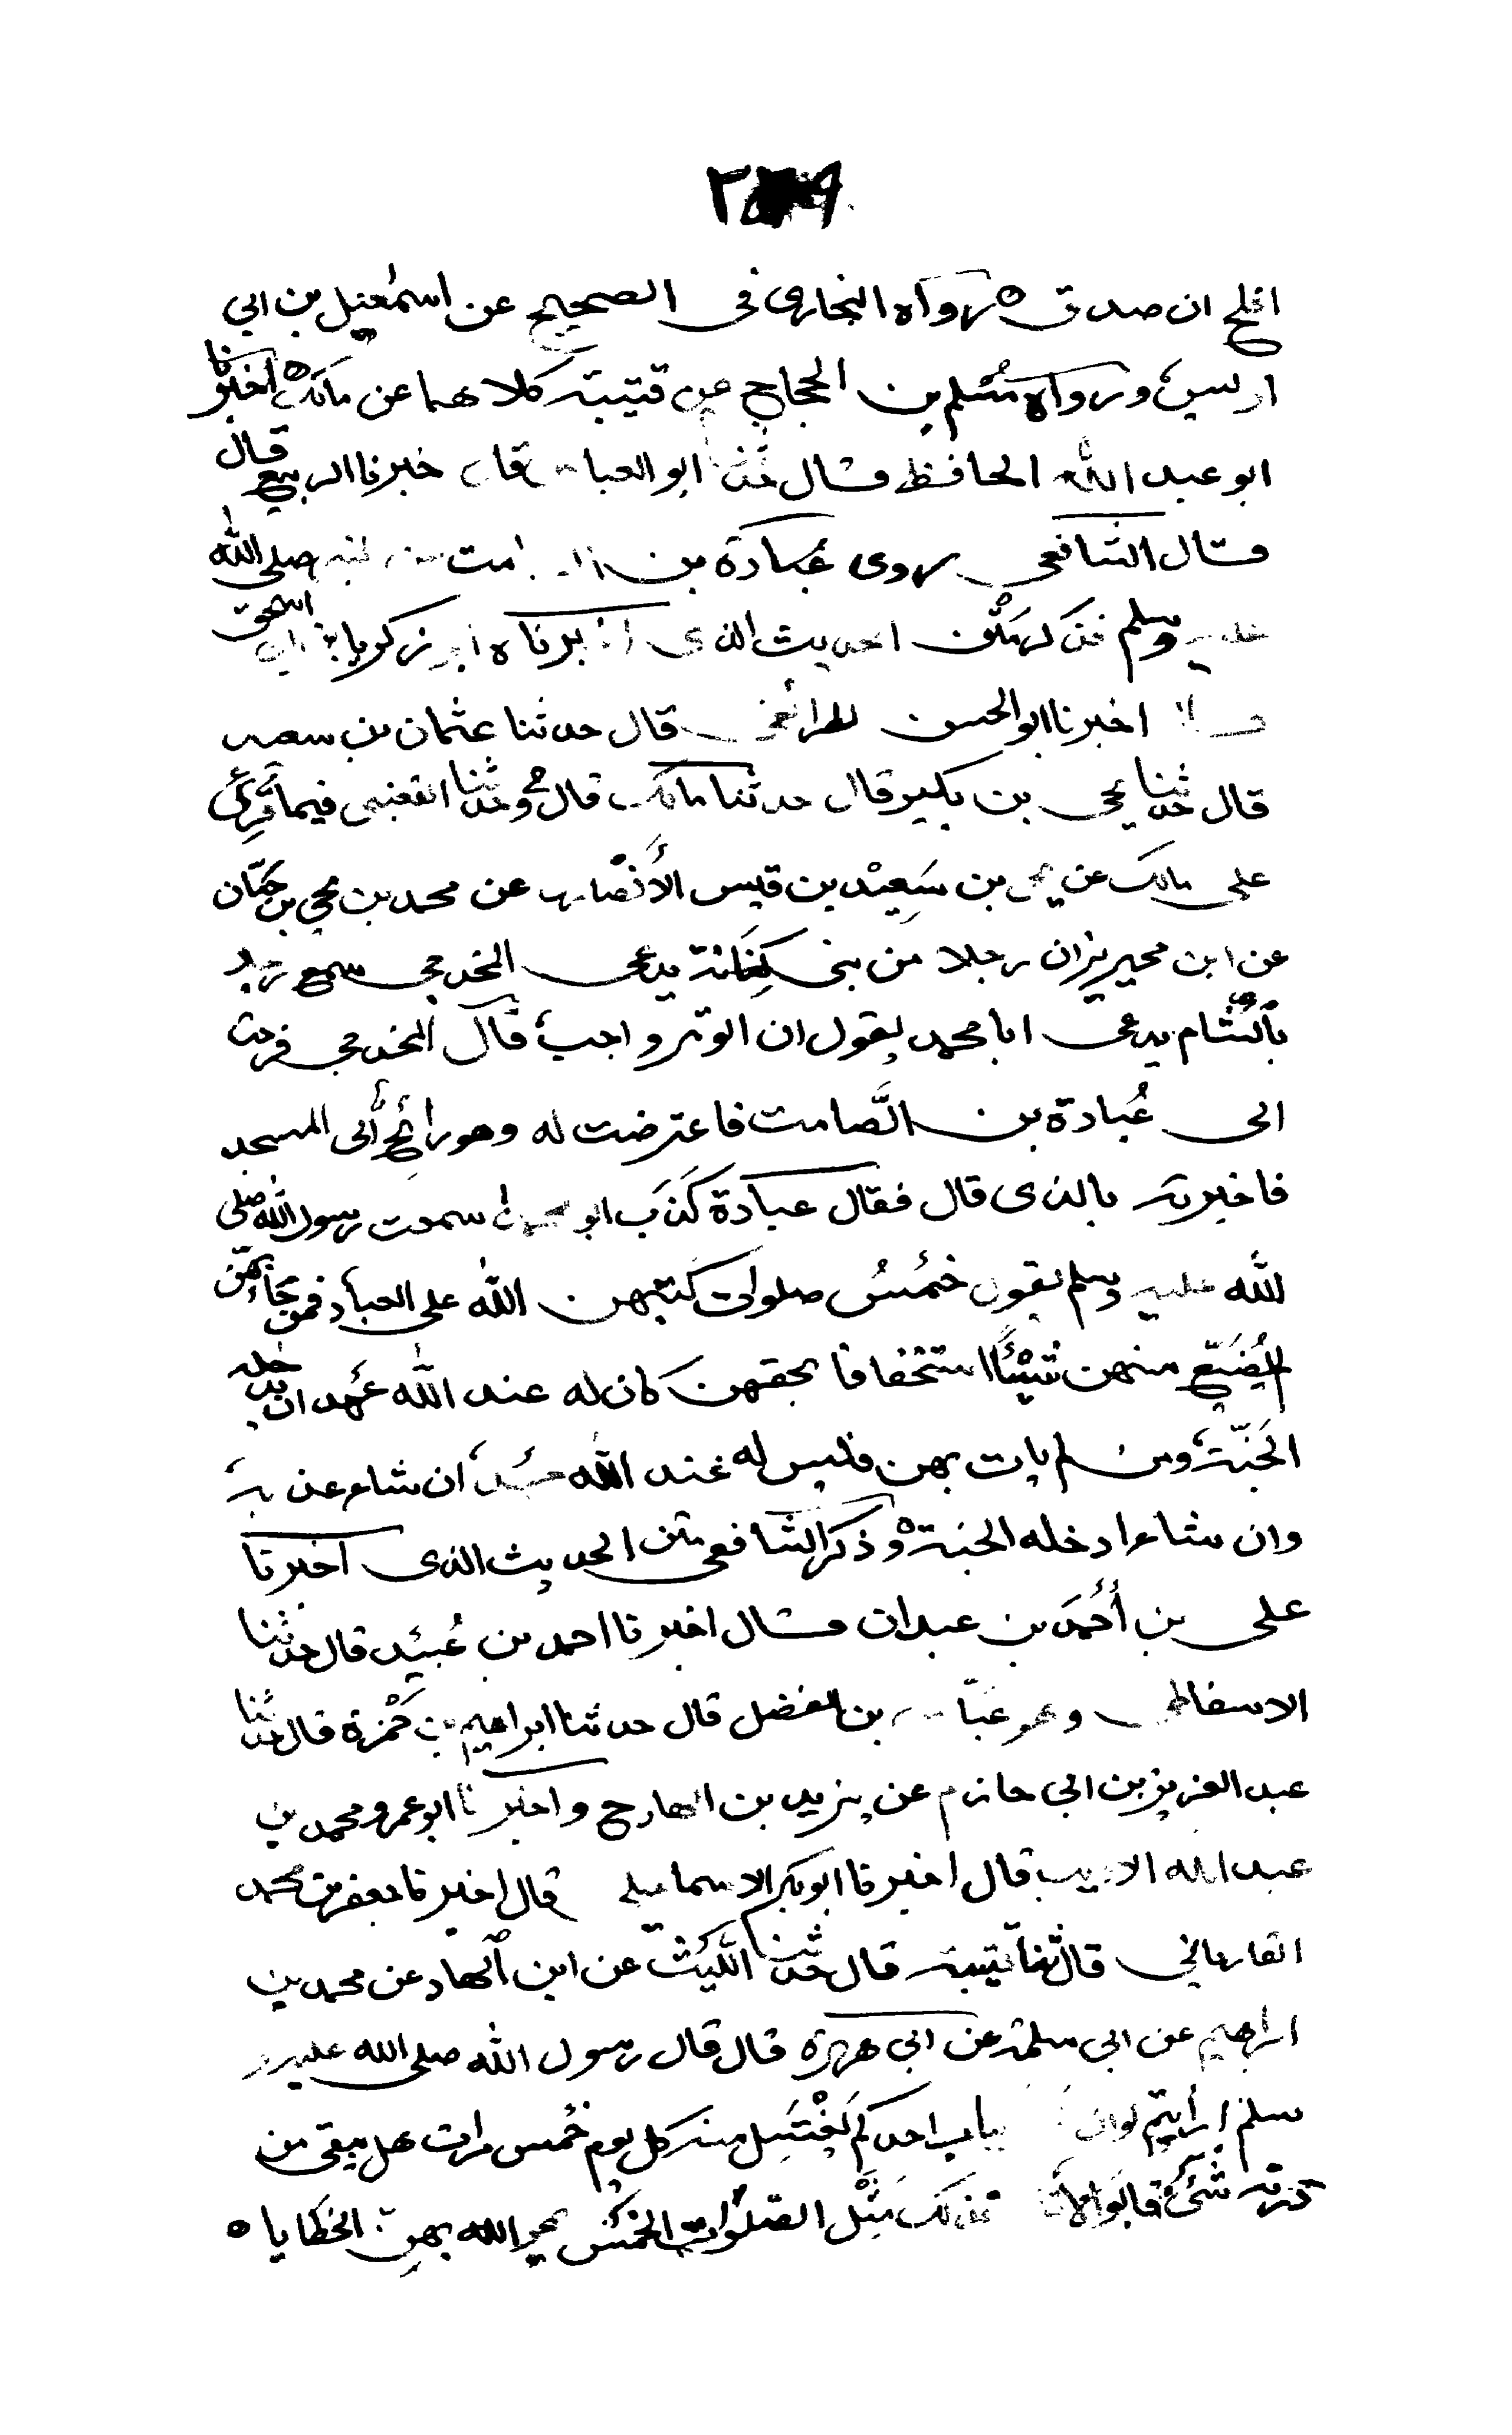 افلح ان صدق ه رواه البخاري في الصحيح عن اسمعيل بن ابي
اويس ورواه مسلم بن الحجاج عن قتيبة كلاهما عن مالك ه اخبرنا
ابو عبد الله الحافظ قال حدثنا ابو العباس قال اخبرنا الربيع قال
قال الشافعي روى عبادة بن الصامت عن النبي صلى الله
عليه وسلم فذكر الحديث الذي اخبرناه ابو زكريا بن ابي اسحق
اخبرنا ابو الحسن الطرائفي قال حدثنا عثمان بن سعيد
قال حدثنا يحيى بن بكير قال حدثنا مالك قال ح وحدثنا القعنبي فيما قرئ
على مالك عن يحيى بن سَعِيْد بن قيس الأَنْصاري عن محمد بن يحيى بن حَبّان
عن ابن محيريز ان رجلا من بني كِنَانة يدعى المخدجي سمع رجلا
بالشام يدعى ابا محمد يقول ان الوتر واجب قال المخدجي فرحت
الى عُبادة بن الصَّامت فاعترضت له وهو رائح الى المسجد
فاخبرته بالذي قال فقال عبادة كَذَب ابو محمد سمعت رسول الله صلى
الله عليه وسلم يقول خمسُ صلوات كتبهن الله على العباد فمن جاء بهن
لم يُضَيّع منهن شيْئًا استخفافا بحقهن كان له عند الله عهد ان يدخله
الجَنّة ومن لم يات بهن فليس له عند الله عهد ان شاء عذبه
وان شاء ادخله الجنة ه وذكر الشافعي متن الحديث الذي اخبرنا
علي بن أَحْمَد بن عبدان قال اخبرنا احمد بن عُبيد قال حدثنا
الاسفاطي وهو عبّاس بن الفضل قال حدثنا ابراهيم بن حَمْزة قال حدثنا
عبد العزيز بن ابي حازم عن يزيد بن الهاد ح واخبرنا ابو عمرو محمد بن
عبد الله الاديب قال اخبرنا ابو بكر الاسماعيلي قال اخبرنا جعفر بن محمد
الفاريابي قال ثنا قتيبة قال حدثنا اللَّيْث عن ابن الهاد عن محمد بن
ابراهيم عن ابي سلمة عن ابي هريرة قال قال رسول الله صلى الله عليه و
سلم ارأيتم لو ان بباب احدكم يَغْتَسِل منه كل يوم خمس مرات هل يبقى من
درنه شئ قالوا لا فذلك مَثَل الصّلَوات الخمس يمحو الله بهن الخطايا ه